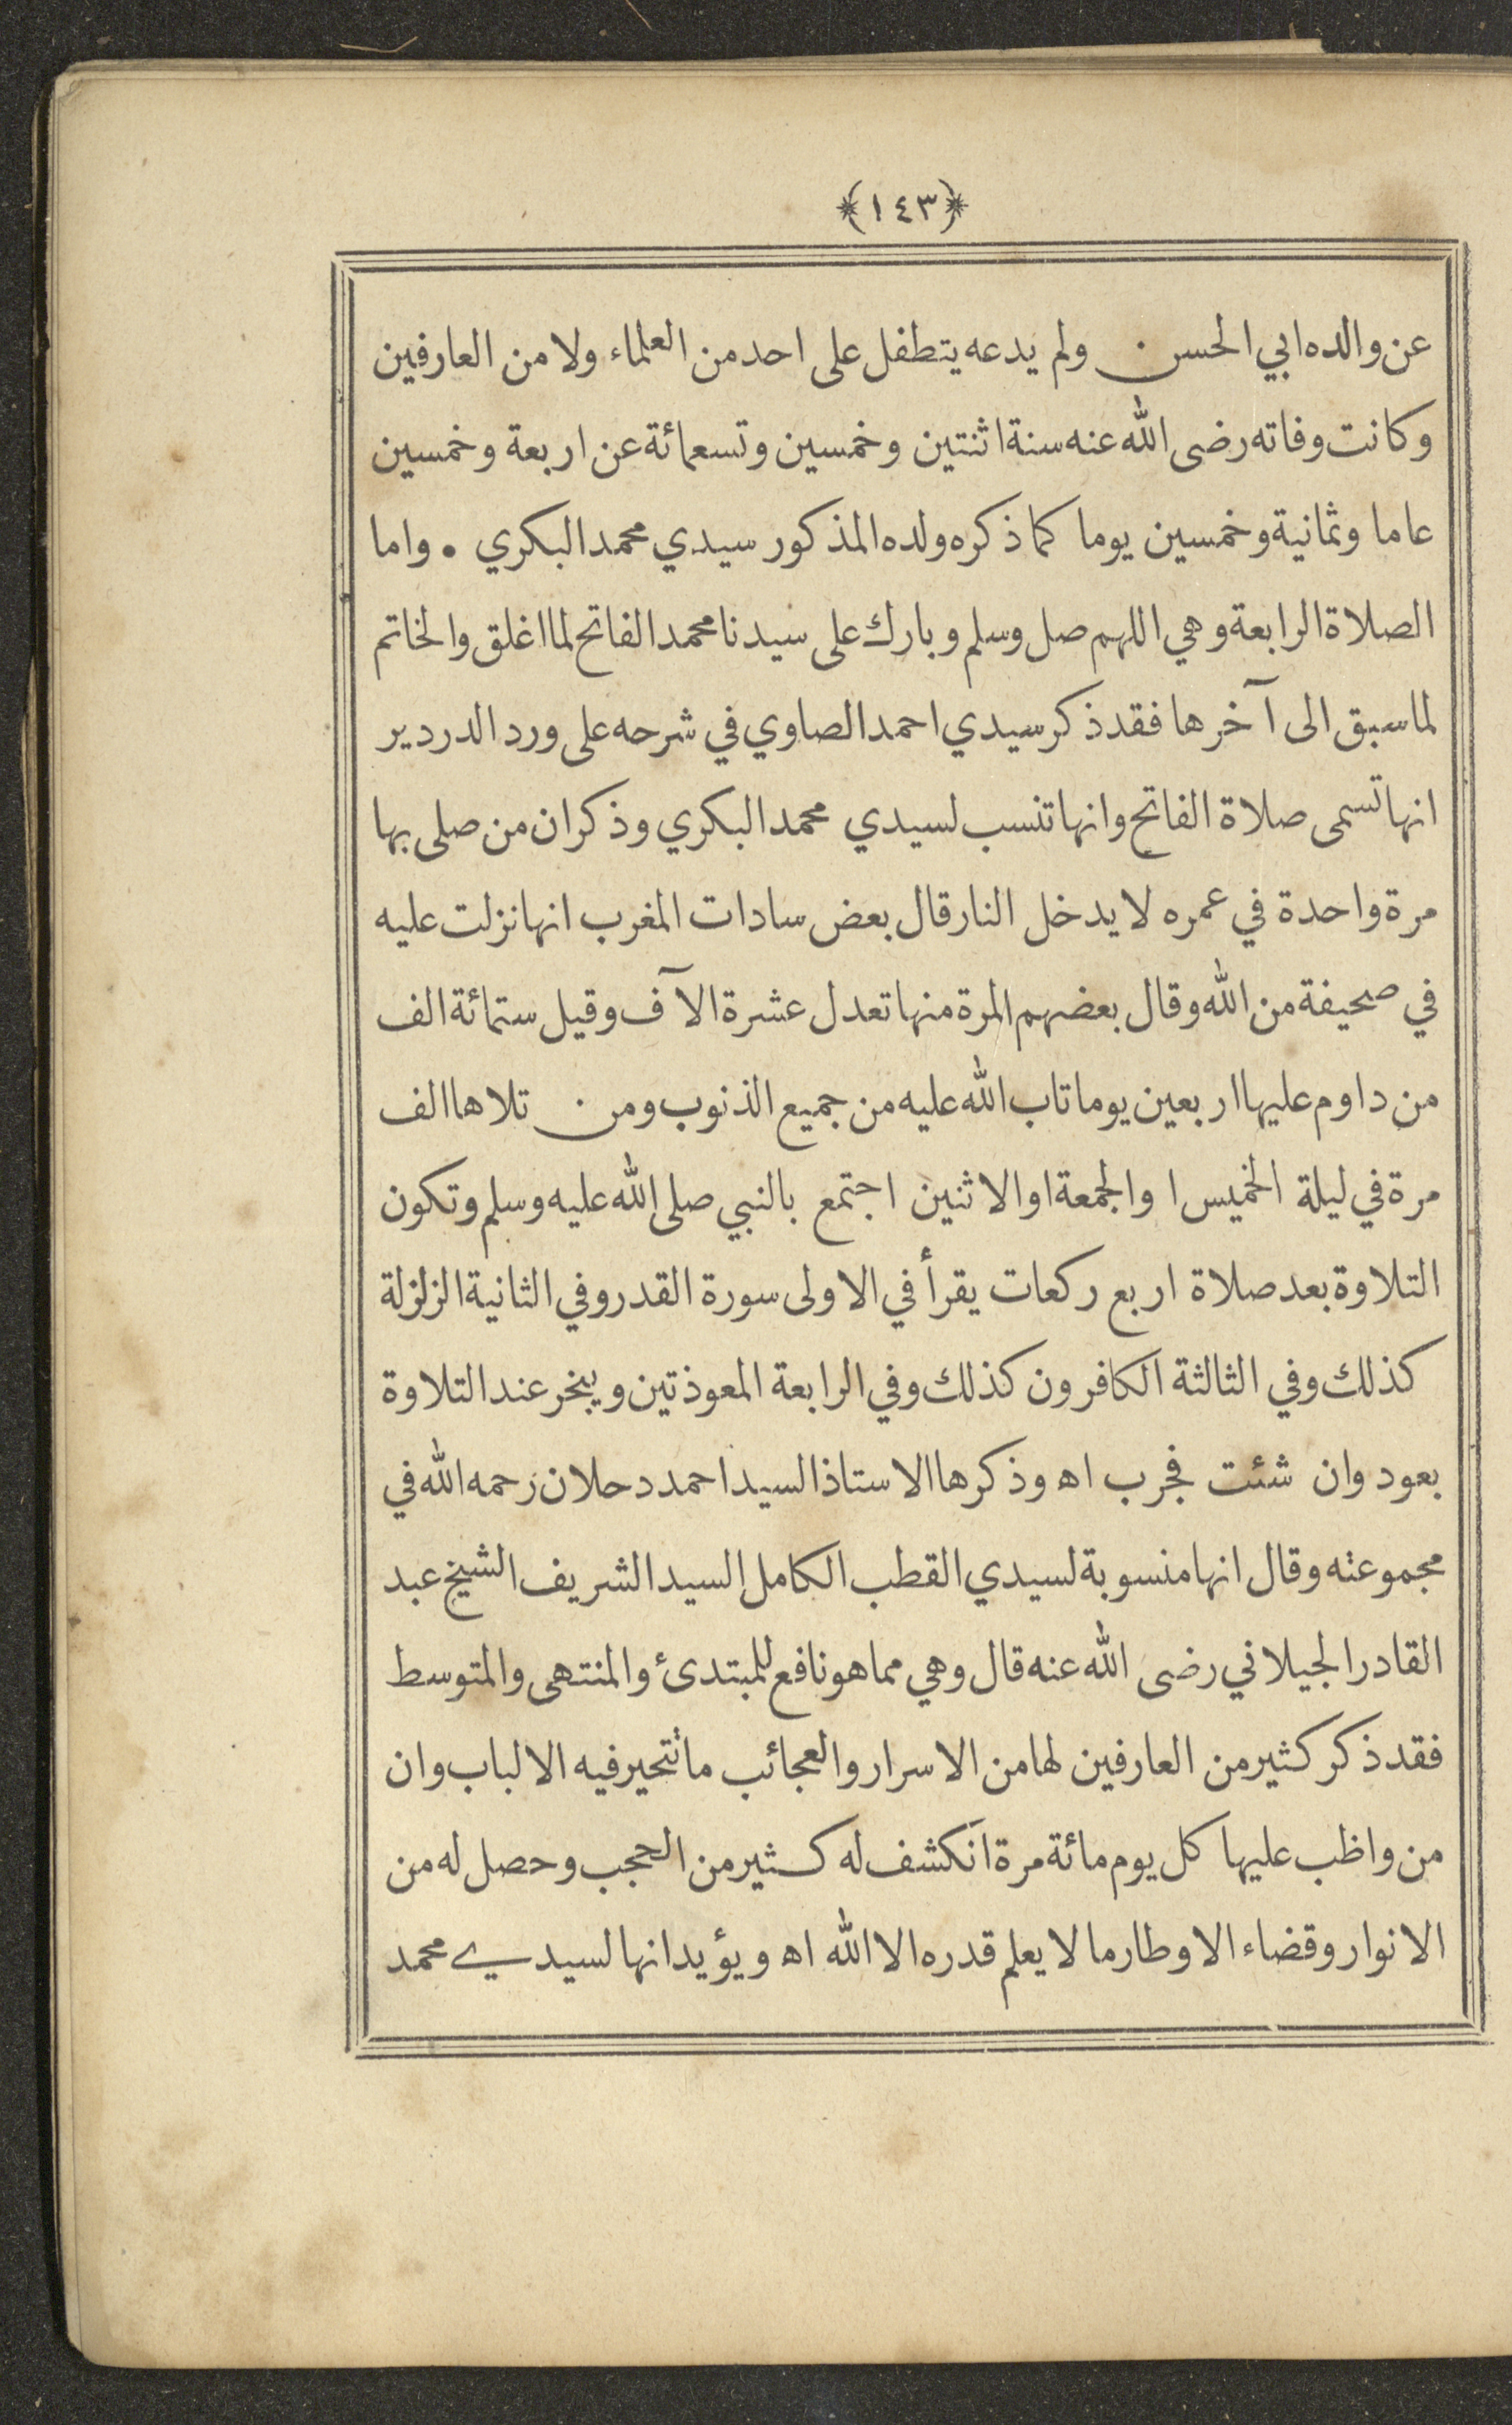 ﴿١٤٣﴾
عن والده ابي الحسن ولم يدعه يتطفل على احد من العلماء ولا من العارفين
وكانت وفاته رضى الله عنه سنة اثنتين وخمسين وتسعمائة عن اربعة وخمسين
عاما وثمانية وخمسين يوما كما ذكره ولده المذكور سيدي محمد البكري • واما
الصلاة الرابعة وهي اللهم صل وسلم وبارك على سيدنا محمد الفاتح لما اغلق والخاتم
لما سبق الى آخرها فقد ذكر سيدي احمد الصاوي في شرحه على ورد الدردير
انها تسمى صلاة الفاتح وانها تنسب لسيدي محمد البكري وذكر ان من صلى بها
مرة واحدة في عمره لا يدخل النار قال بعض سادات المغرب انها نزلت عليه
في صحيفة من الله وقال بعضهم المرة منها تعدل عشرة الآف وقيل ستمائة الف
من داوم عليها اربعين يوما تاب الله عليه من جميع الذنوب ومن تلاها الف
مرة في ليلة الخميس او الجمعة او الاثنين اجتمع بالنبي صلى الله عليه وسلم وتكون
التلاوة بعد صلاة اربع ركعات يقرأ في الاولى سورة القدر وفي الثانية الزلزلة
كذلك وفي الثالثة الكافرون كذلك وفي الرابعة المعوذتين ويبخر عند التلاوة
بعود وان شئت فجرب اه وذكرها الاستاذ السيد احمد دحلان رحمه الله في
مجموعته وقال انها منسوبة لسيدي القطب الكامل السيد الشريف الشيخ عبد
القادر الجيلاني رضى الله عنه قال وهي مما هو نافع للمبتدئ والمنتهى والمتوسط
فقد ذكر كثير من العارفين لها من الاسرار والعجائب ما تتحير فيه الالباب وان
من واظب عليها كل يوم مائة مرة انكشف له كثير من الحجب وحصل له من
الانوار وقضاء الاوطار ما لا يعلم قدره الا الله اه ويؤيد انها لسيدي محمد